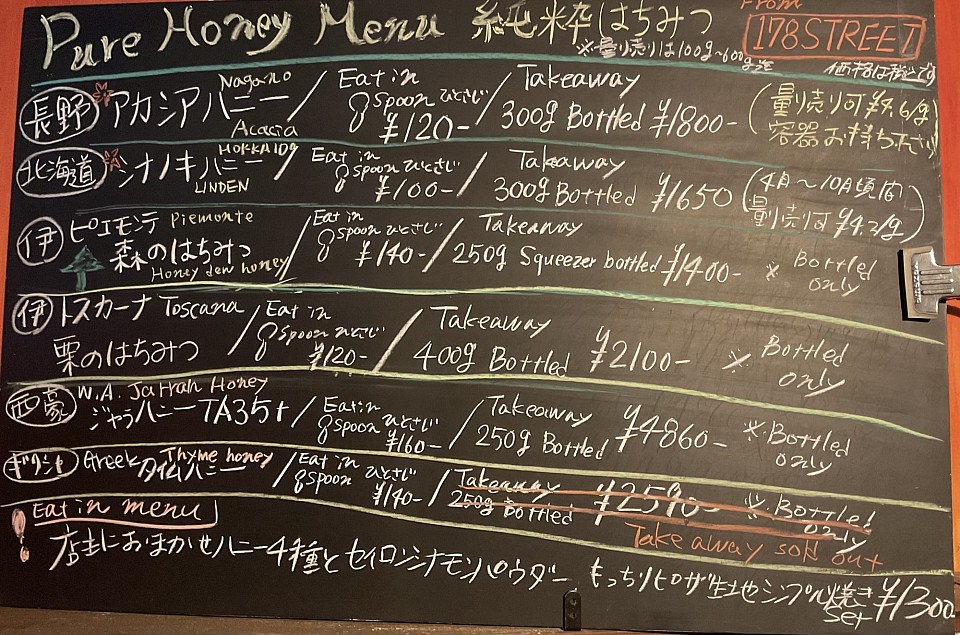 Pure Honey Menu 純粋はちみつ
From 178STREET
※量り売りは100g~600g迄
価格は税込です
長野 アカシアハニー Nagano Acacia / Eat in Spoon ひとさじ ¥120- / Takeaway 300g Bottled ¥1800- (量り売り可 ¥4.6/g 容器お持ち下さい)
北海道 シナノキハニー HOKKAIDO LINDEN / Eat in Spoon ひとさじ ¥100- / Takeaway 300g Bottled ¥1650 (4月~10月頃迄 量り売り可 ¥4.2/g)
伊 ピエモンテ Piemonte
森のはちみつ Honey dew honey / Eat in Spoon ひとさじ ¥140- / Takeaway 250g Squeezer bottled ¥1400- ※ Bottled only
伊 トスカーナ Toscana
栗のはちみつ / Eat in Spoon ひとさじ ¥120- / Takeaway 400g Bottled ¥2100- ※ Bottled only
西豪 W.A. Jarrah Honey
ジャラハニー TA35+ / Eat in Spoon ひとさじ ¥160- / Takeaway 250g Bottled ¥4860- ※ Bottled only
ギリシャ Greek Thyme honey タイムハニー / Eat in Spoon ひとさじ ¥140- / Takeaway 250g Bottled ¥2590- ※ Bottled only
Take away sold out
Eat in menu
店主におまかせハニー4種とセイロンシナモンパウダー もっちりピザ生地シンプル焼き set ¥1300